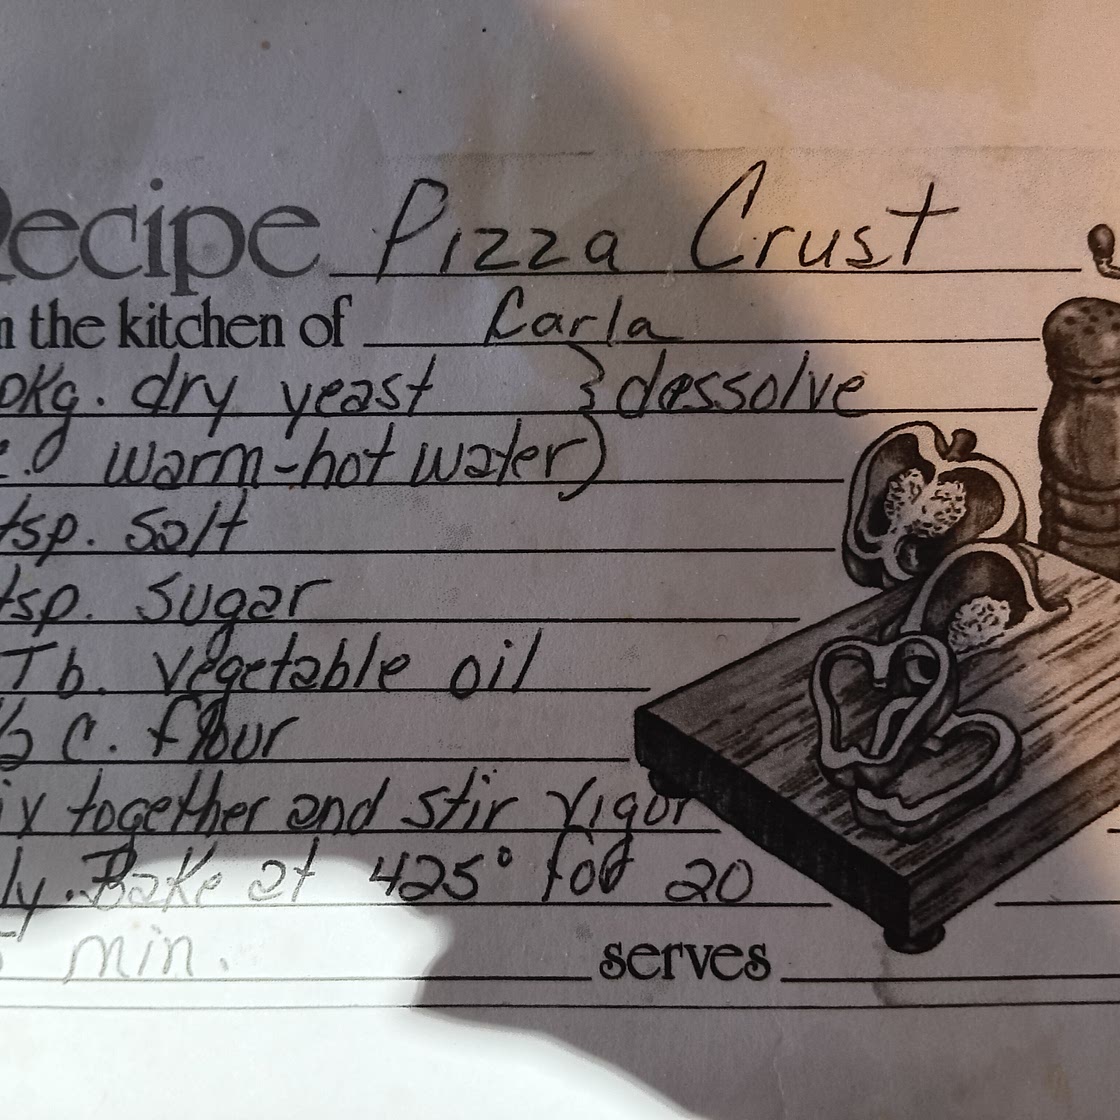 Recipe Pizza Crust
the kitchen of Carla
pkg. dry yeast } dessolve
warm-hot water)
tsp. salt
tsp. sugar
Tb. vegetable oil
c. flour
together and stir vigor
ly. Bake at 425° for 20
min.
serves